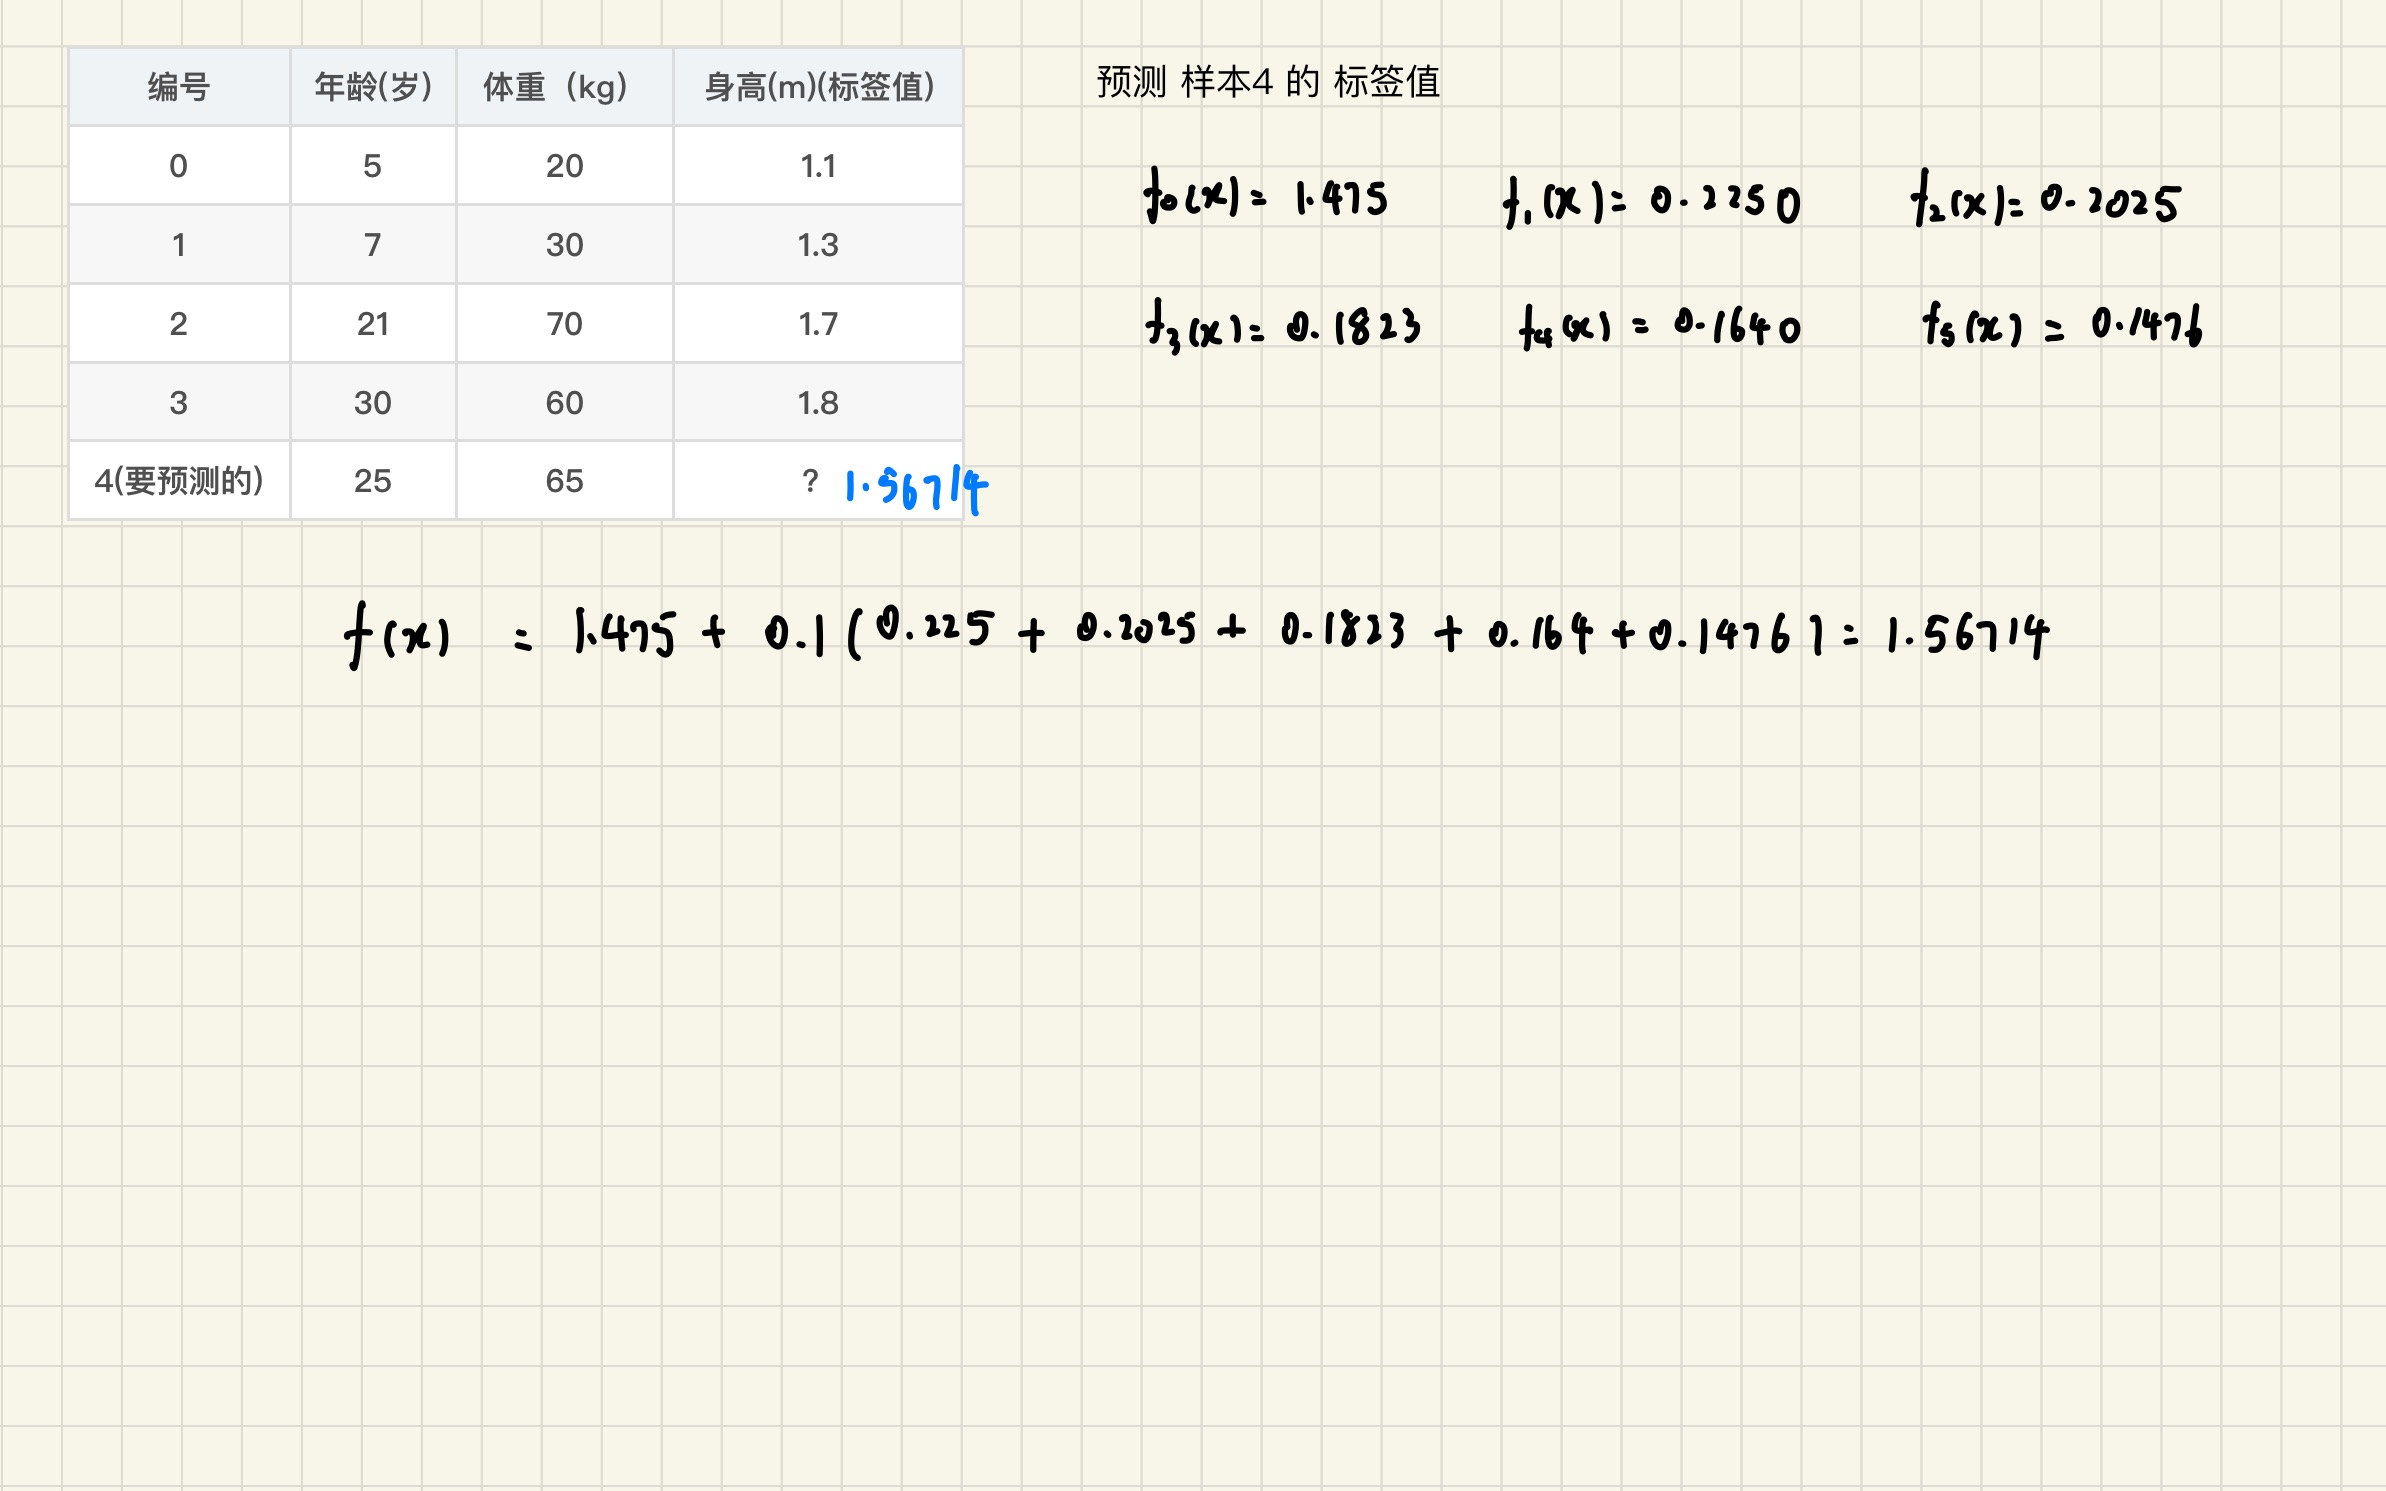 编号 年龄(岁) 体重（kg） 身高(m)(标签值)
0 5 20 1.1
1 7 30 1.3
2 21 70 1.7
3 30 60 1.8
4(要预测的) 25 65 ? 1.56714
预测 样本4 的 标签值
f₀(x) = 1.475 f₁(x) = 0.2250 f₂(x) = 0.2025
f₃(x) = 0.1823 f₄(x) = 0.1640 f₅(x) = 0.1476
f(x) = 1.475 + 0.1 ( 0.225 + 0.2025 + 0.1823 + 0.164 + 0.1476 ) = 1.56714